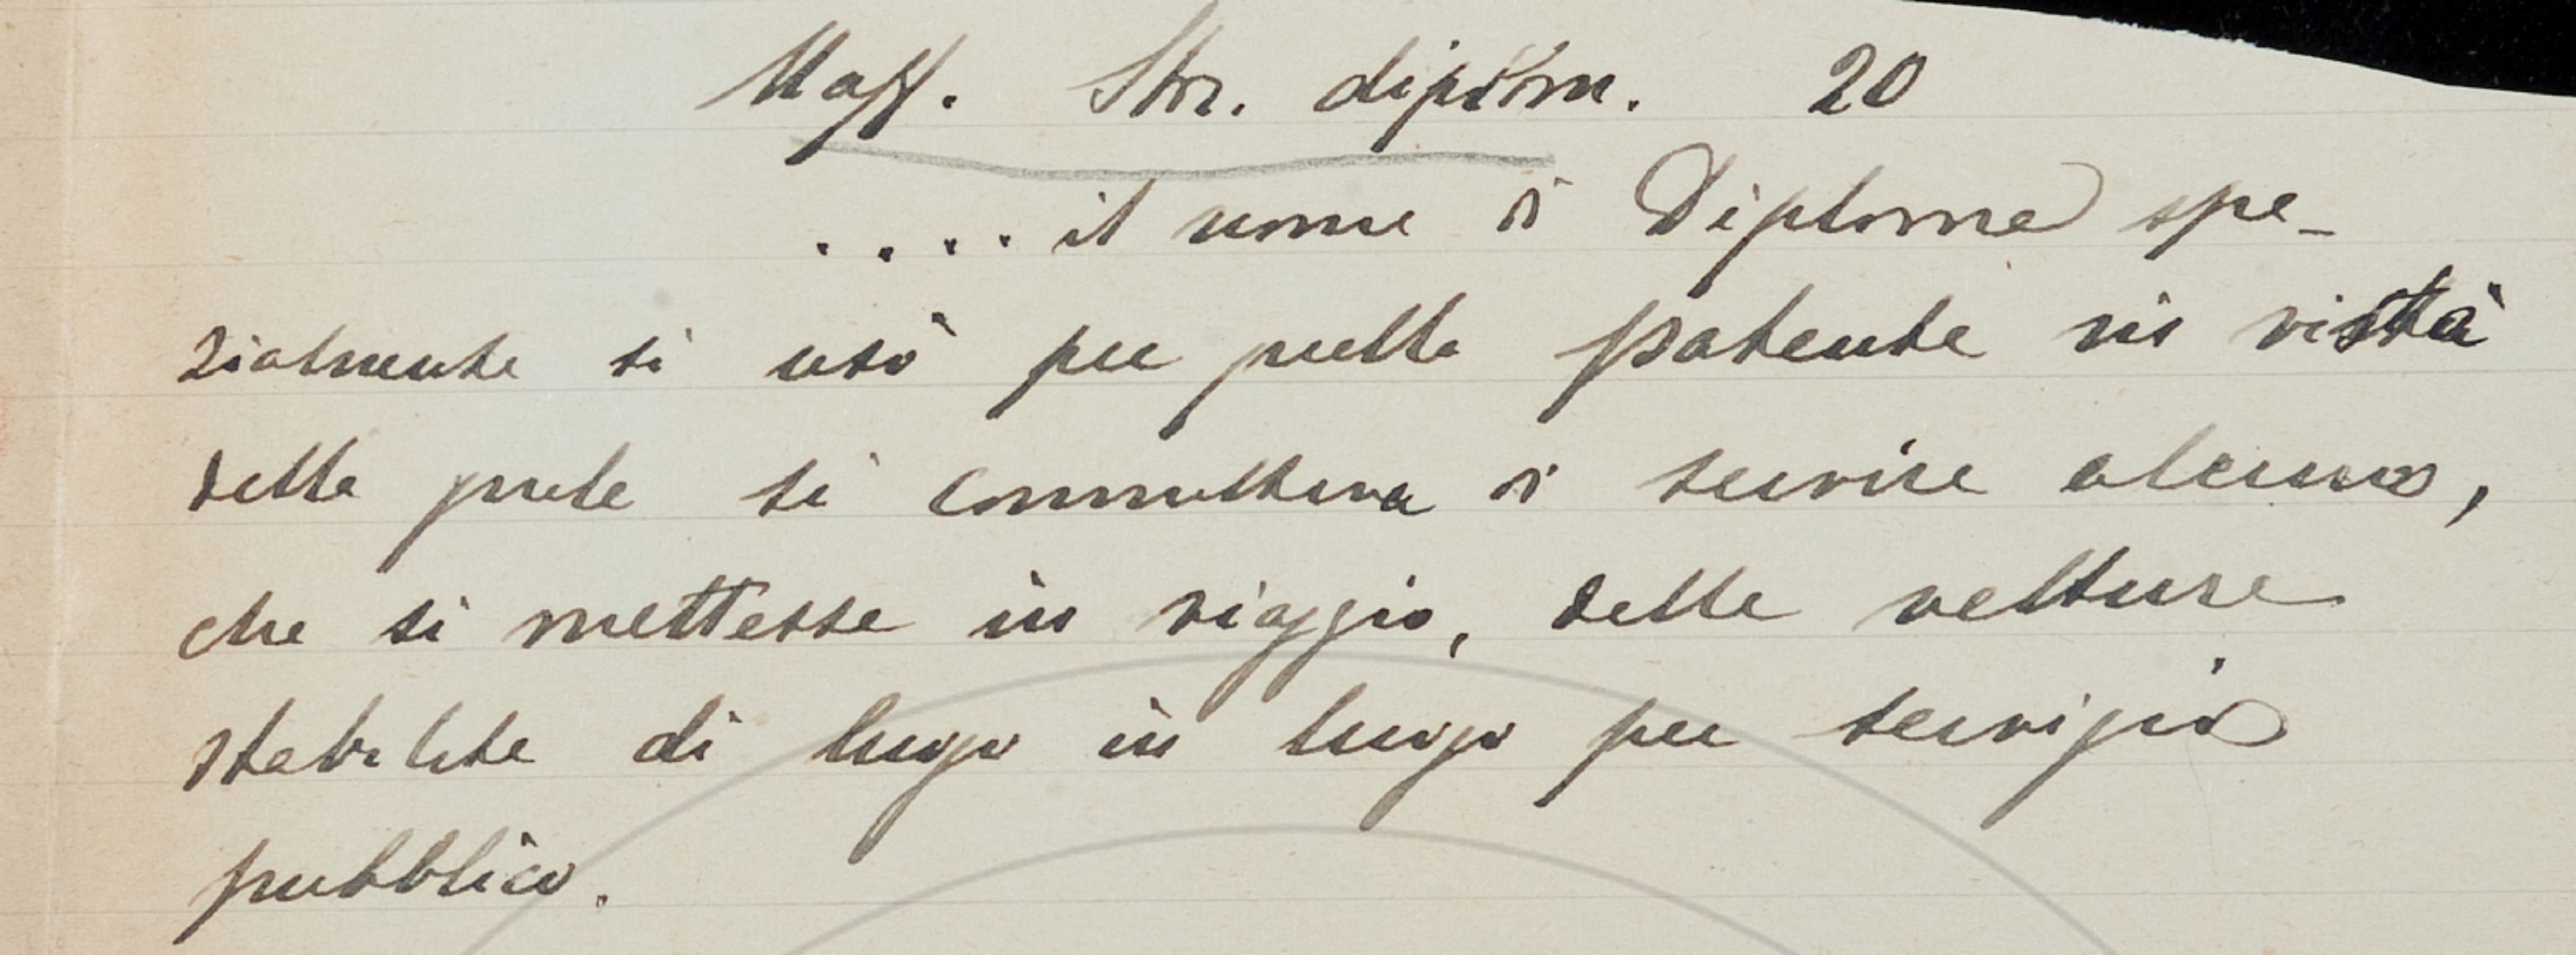 Maff. Stor. diplom. 20
.... il nome di Diploma spe-
zialmente si usò per quella patente in vista
della quale si commetteva di servire alcuno,
che si mettesse in viaggio, delle vetture
stabilite di luogo in luogo per servigio
pubblico.